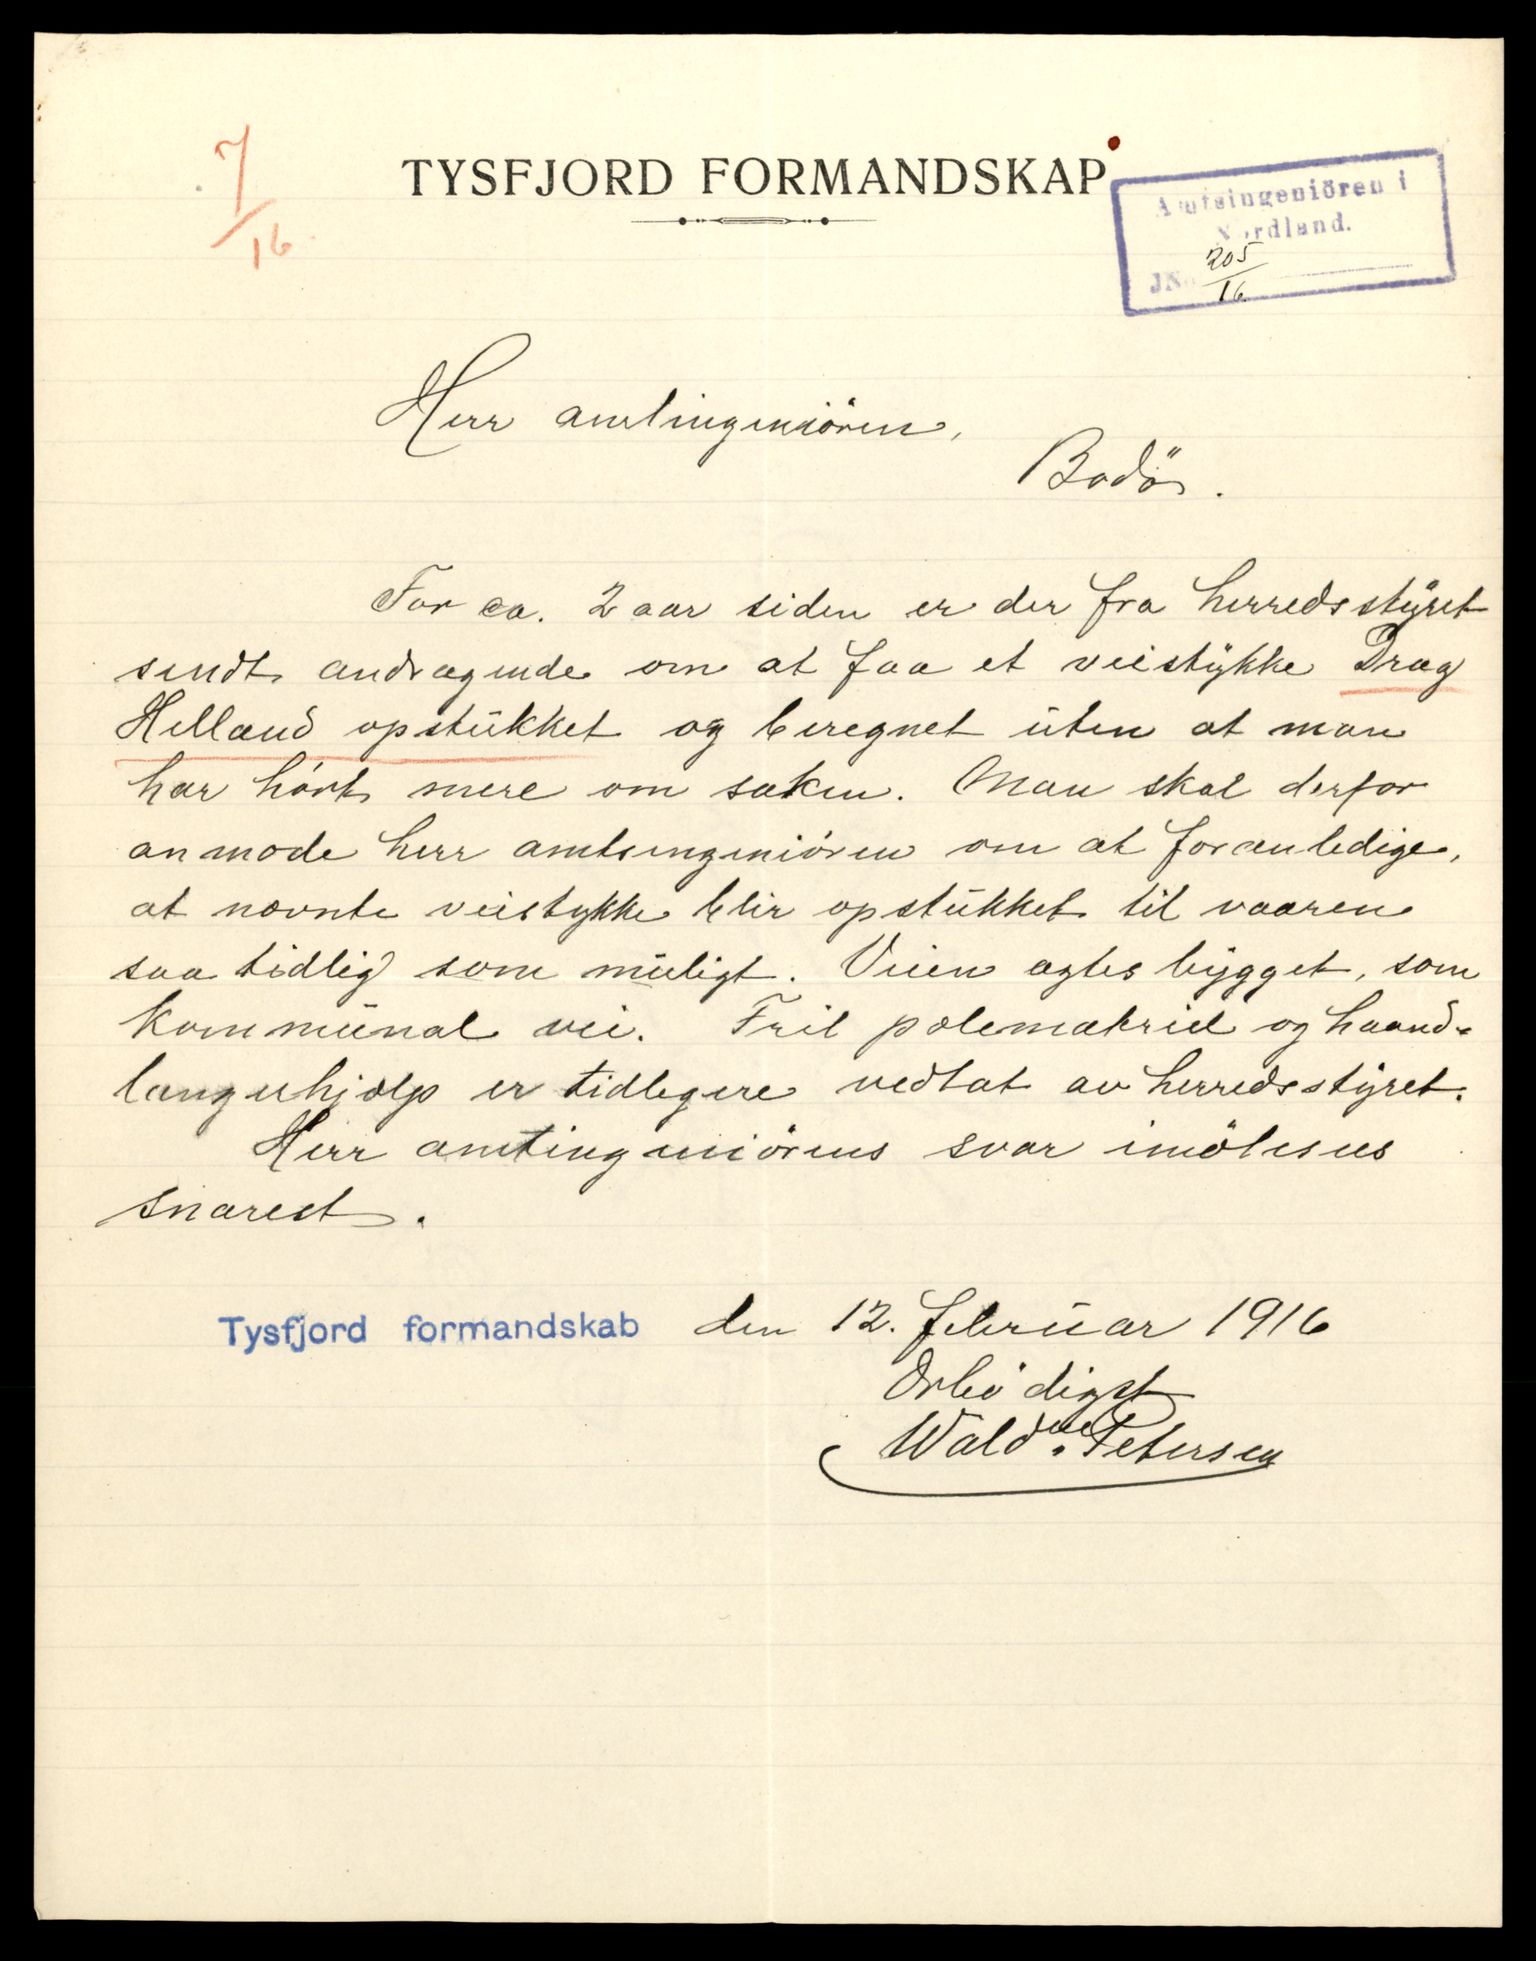 7/16
TYSFJORD FORMANDSKAP
Amtsingeniören i
Nordland.
JNo 205/16
Herr amtingeniören,
Bodö.
For ca. 2 aar siden er der fra herredsstyret
sendt andragende om at faa et veistykke Drag
Helland opstukket og beregnet uten at man
har hört mere om saken. Man skal derfor
anmode herr amtsingeniören om at foranledige,
at nævnte veistykke blir opstukket til vaaren
saa tidlig som muligt. Veien agtes bygget, som
kommunal vei. Frit pælemateriel og haand-
langerhjælp er tidligere vedtat av herredsstyret.
Herr amtingeniörens svar imötesees
snarest.
Tysfjord formandskab den 12. februar 1916
Ærbödigst
Wald. Petersen